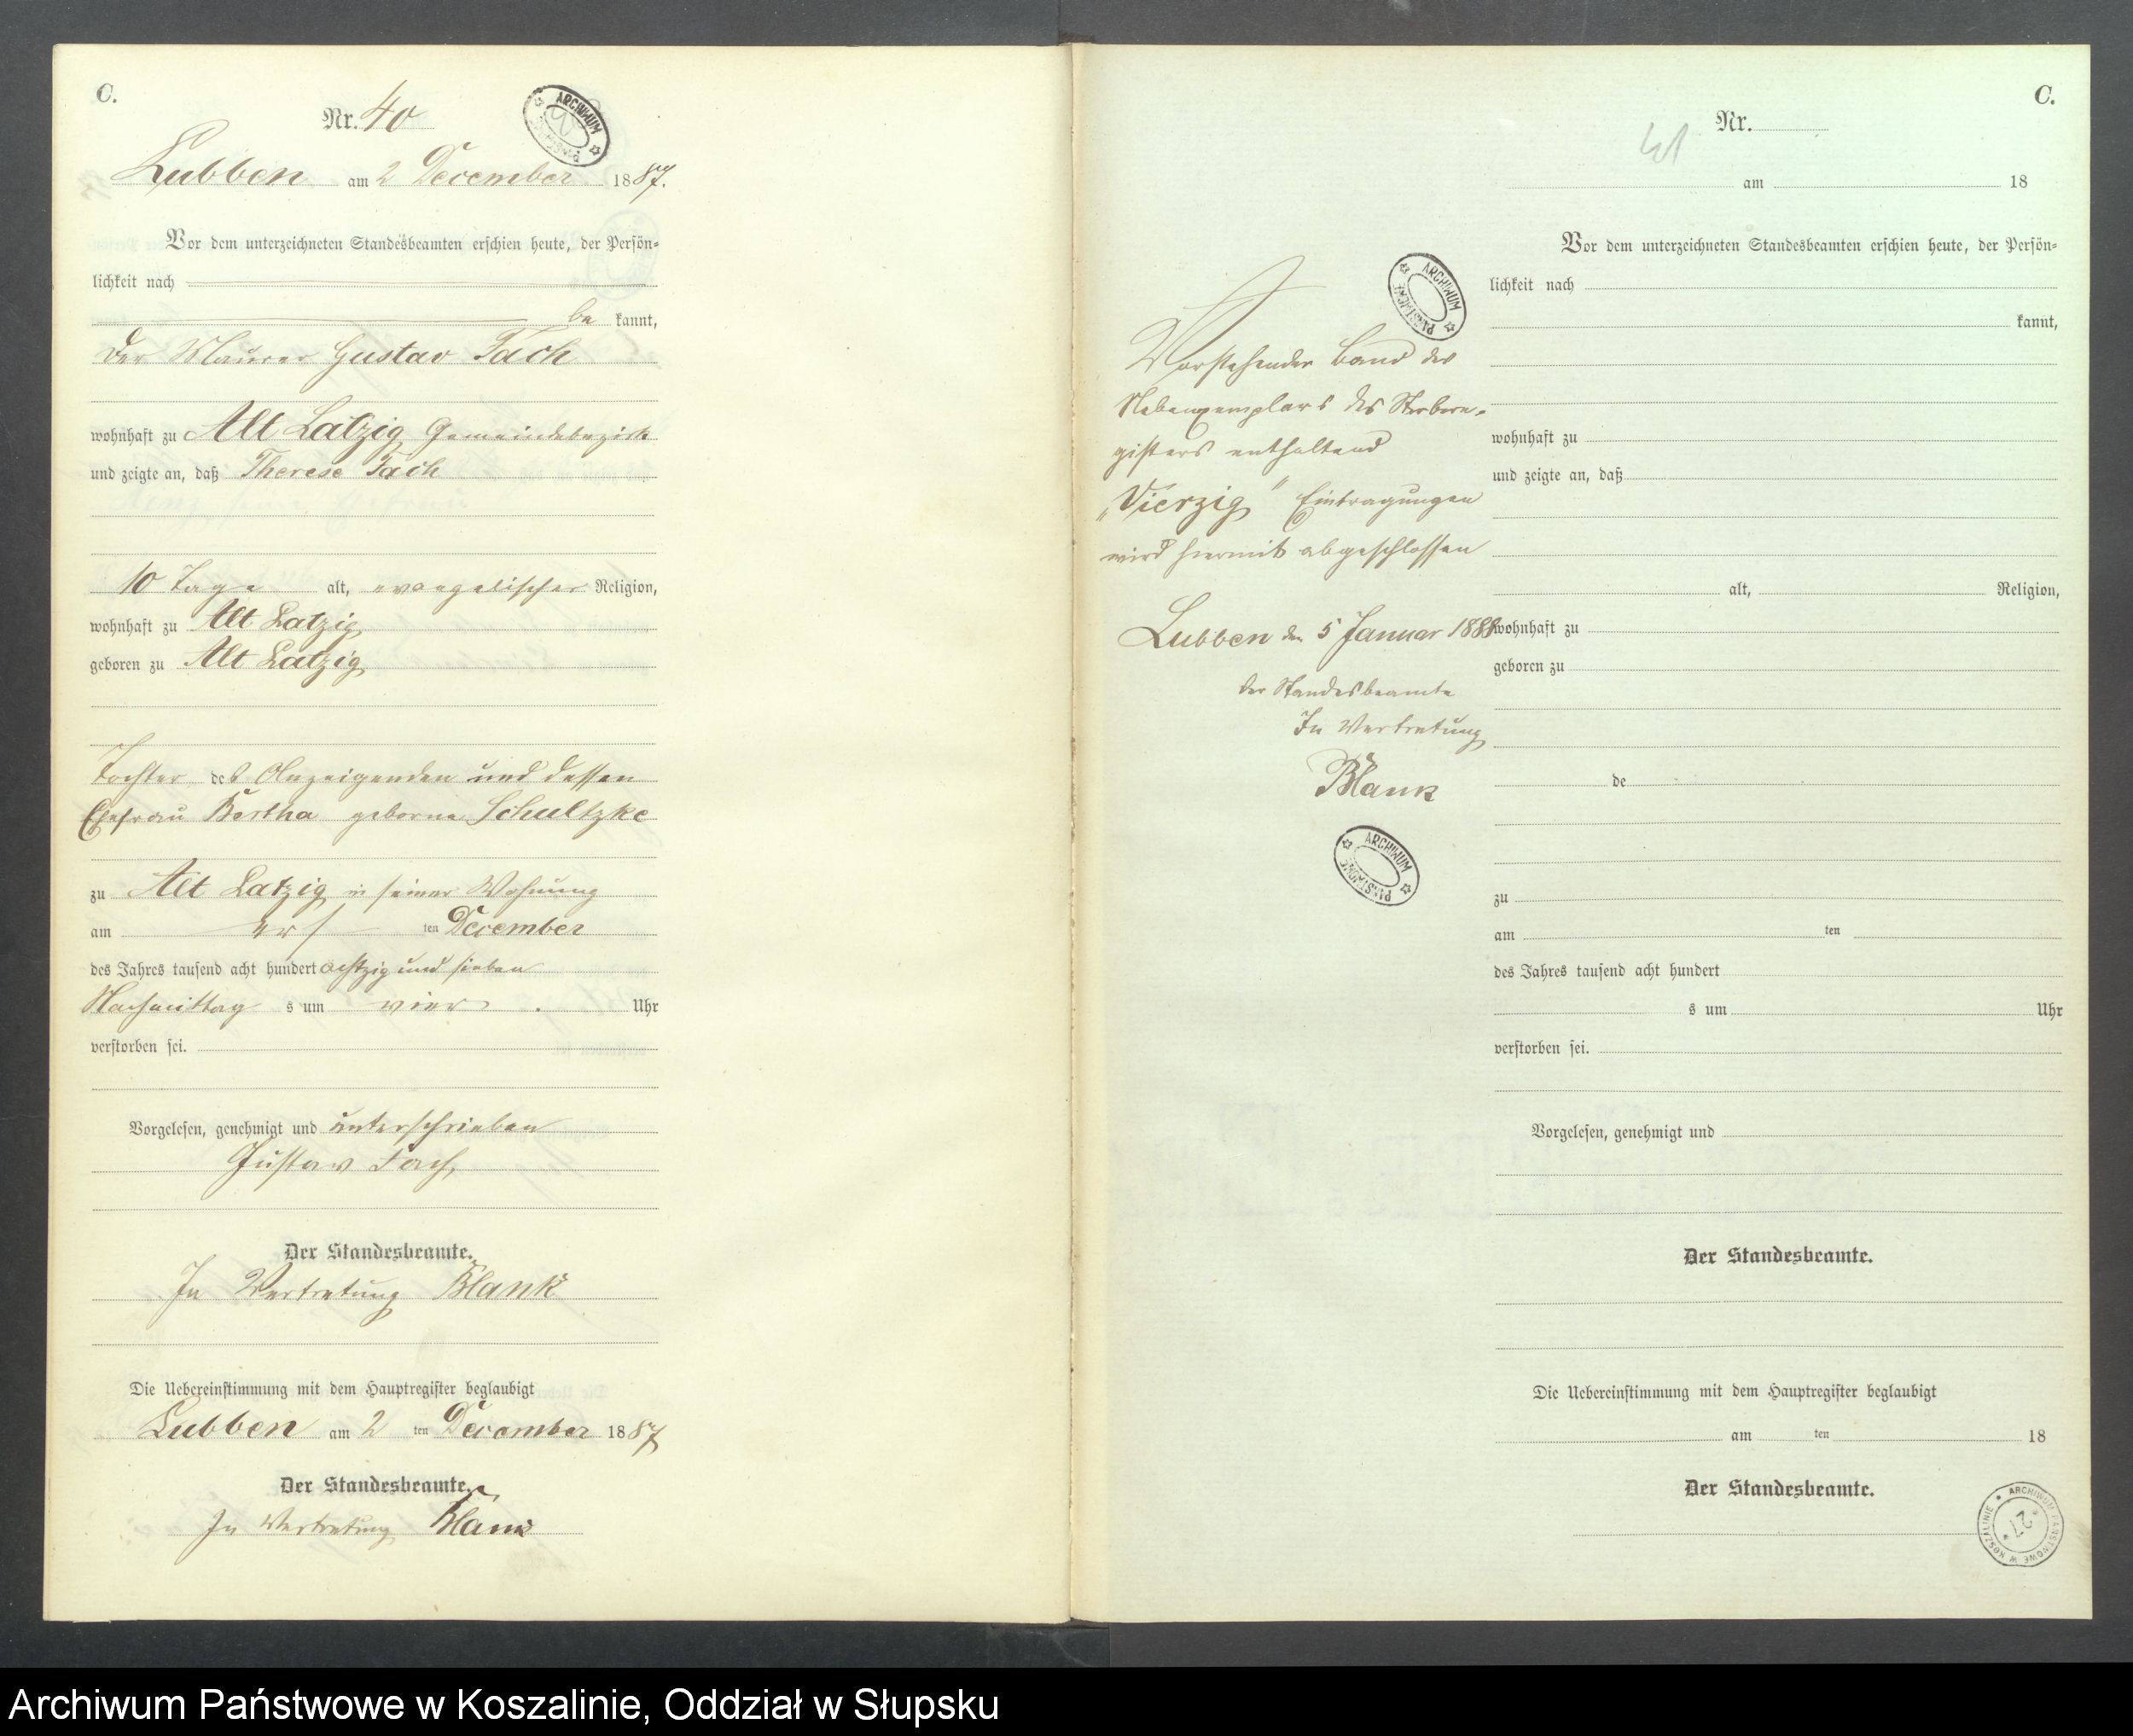 C.
Nr. 40
ARCHIWUM
Lubben am 2 December 1887.
Vor dem unterzeichneten Standesbeamten erschien heute, der Persön-
lichkeit nach
be kannt,
der Maurer Gustav Tach
wohnhaft zu Alt Latzig Gemeindebezirk
und zeigte an, daß Therese Tach
10 Tage alt, evangelischer Religion,
wohnhaft zu Alt Latzig
geboren zu Alt Latzig
Tochter des Anzeigenden und dessen
Ehefrau Bertha geborne Schultzke
zu Alt Latzig in seiner Wohnung
am ers ten December
des Jahres tausend acht hundert achtzig und sieben
Nachmittag s um vier Uhr
verstorben sei.
Vorgelesen, genehmigt und unterschrieben
Gustav Tach
Der Standesbeamte.
In Vertretung Blank
Die Uebereinstimmung mit dem Hauptregister beglaubigt
Lubben am 2 ten December 1887
Der Standesbeamte.
In Vertretung Blank
C.
Nr.
am 18
Vor dem unterzeichneten Standesbeamten erschien heute, der Persön-
lichkeit nach
kannt,
wohnhaft zu
und zeigte an, daß
alt, Religion,
wohnhaft zu
geboren zu
de
zu
am ten
des Jahres tausend acht hundert
s um Uhr
verstorben sei.
Vorgelesen, genehmigt und
Der Standesbeamte.
Die Uebereinstimmung mit dem Hauptregister beglaubigt
am ten 18
Der Standesbeamte.
ARCHIWUM PAŃSTWOWE
Vorstehender Band des
Nebenexemplars des Sterbere-
gisters enthaltend
„Vierzig" Eintragungen
wird hiermit abgeschlossen
Lubben den 5 Januar 1888
Der Standesbeamte
In Vertretung
Blank
ARCHIWUM PAŃSTWOWE
ARCHIWUM PAŃSTWOWE W KOSZALINIE
* 27 *
Archiwum Państwowe w Koszalinie, Oddział w Słupsku